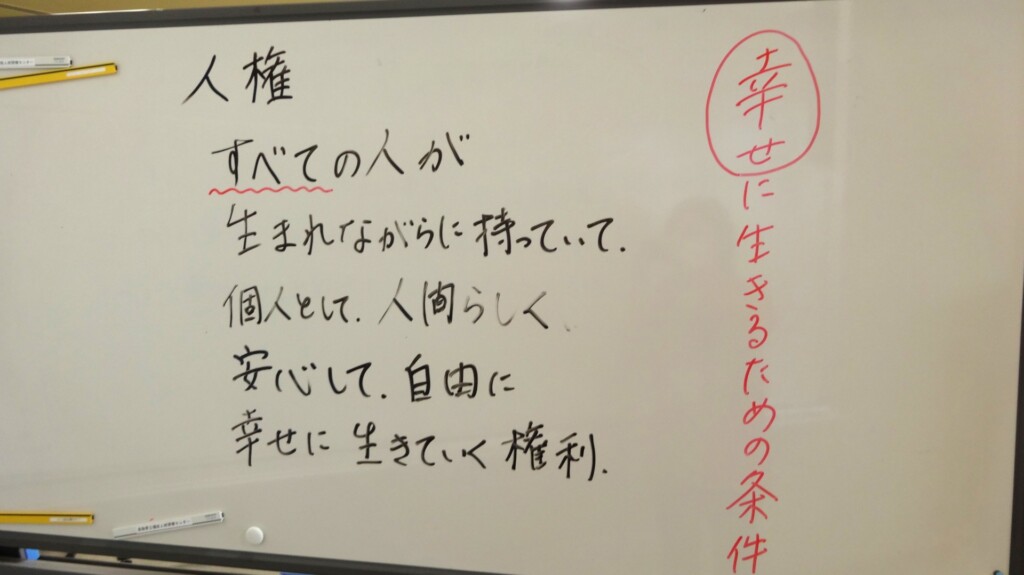 人権
すべての人が
生まれながらに持っていて.
個人として.人間らしく、
安心して.自由に
幸せに生きていく権利.
幸せに生きるための条件